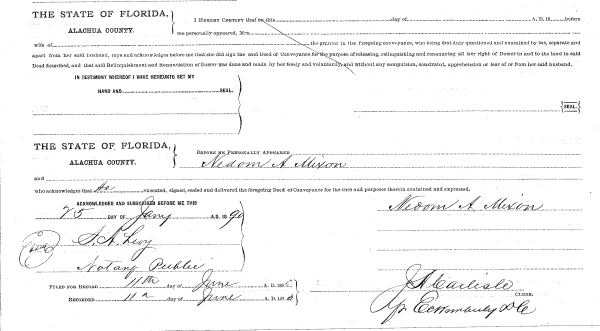 THE STATE OF FLORIDA,
ALACHUA COUNTY.
I HEREBY CERTIFY that on this day of A. D. 18 before
me personally appeared, Mrs.
wife of the grantor in the foregoing conveyance, who being first duly questioned and examined by me, separate and
apart from her said husband, says and acknowledges before me that she did sign the said Deed of Conveyance for the purpose of releasing, relinquishing and renouncing all her right of Dower in and to the land in said
Deed described, and that said Relinquishment and Renunciation of Dower was done and made by her freely and voluntarily, and without any compulsion, constraint, apprehension or fear of or from her said husband.
IN TESTIMONY WHEREOF I HAVE HEREUNTO SET MY
HAND AND SEAL.
SEAL.
THE STATE OF FLORIDA,
ALACHUA COUNTY.
BEFORE ME PERSONALLY APPEARED
Nedom A. Mixon
and
who acknowledges that he executed, signed, sealed and delivered the foregoing Deed of Conveyance for the uses and purposes therein contained and expressed.
ACKNOWLEDGED AND SUBSCRIBED BEFORE ME THIS
25 DAY OF Jany A. D. 1890
Nedom A. Mixon
Levy
Notary Public
FILED FOR RECORD 11th day of June A. D.
RECORDED 11th day of June A. D.
J A Carlisle
CLERK.